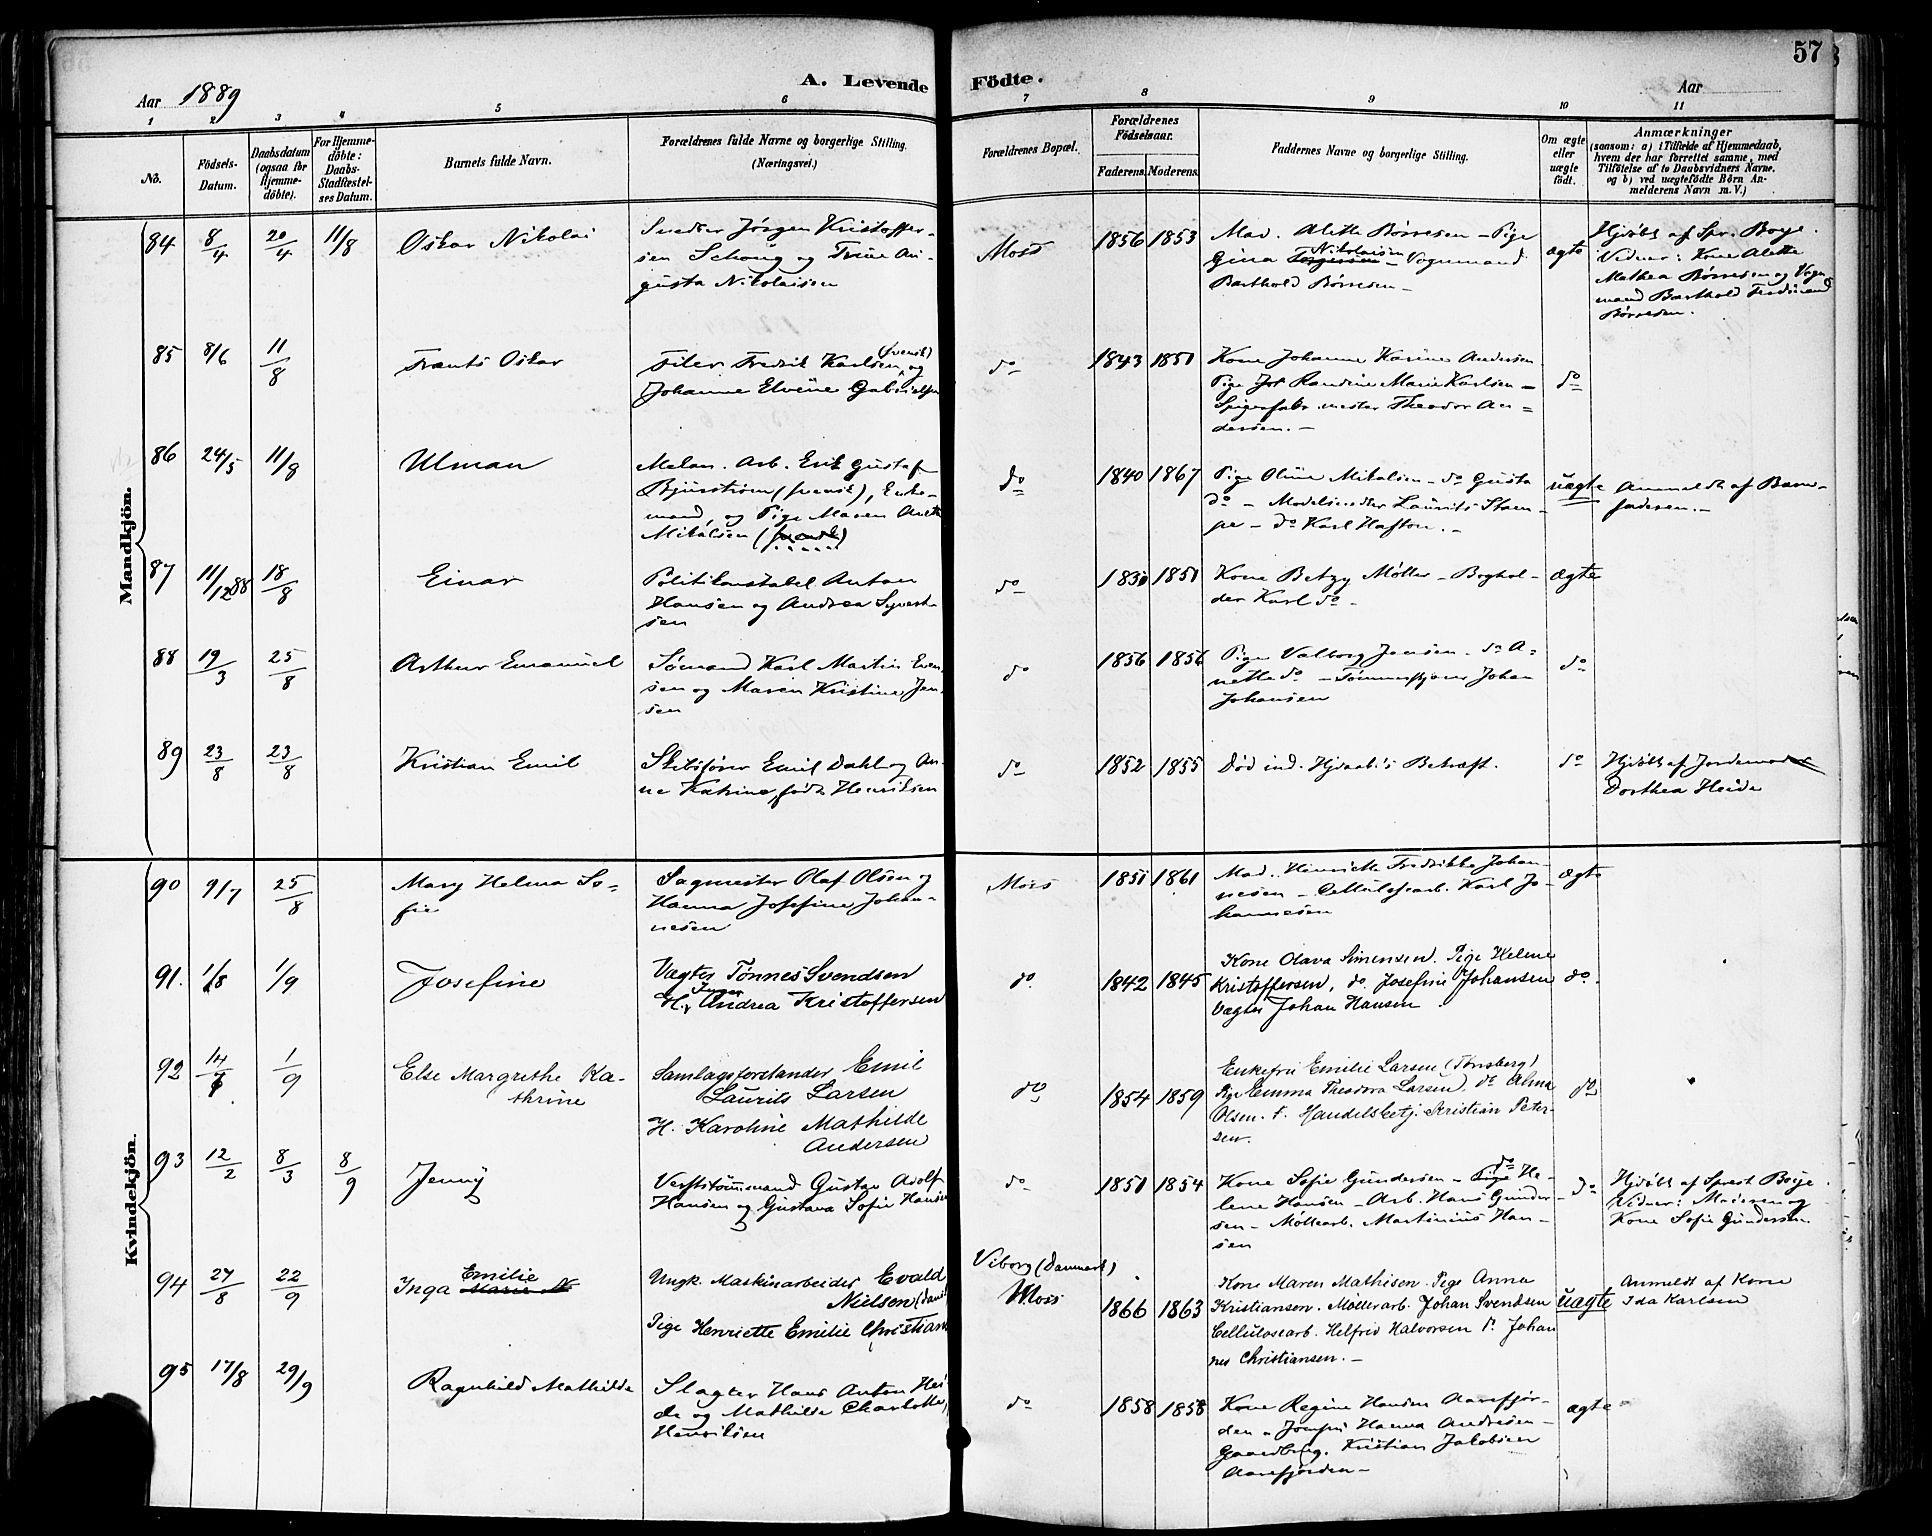 57
Aar 1889
A. Levende Födte.
Aar
1 2 3 4 5 6 7 8 9 10 11
No.
Födsels-
Datum.
Daabsdatum
(ogsaa for
Hjemme-
döbte).
For Hjemme-
döbte:
Daabs-
Stadfæstel-
ses Datum.
Barnets fulde Navn.
Forældrenes fulde Navne og borgerlige Stilling.
(Næringsvei.)
Forældrenes Bopæl.
Forældrenes
Födselsaar.
Faderens. Moderens.
Faddernes Navne og borgerlige Stilling.
Om ægte
eller
uægte
födt.
Anmærkninger
(saasom: a) i Tilfælde af Hjemmedaab,
hvem der har forrettet samme, med
Tilföielse af to Daabsvidners Navne,
og b) ved uægtefödte Börn An-
melderens Navn m. V.)
Mandkjön.
84 8/4 20/4 11/8 Oskar Nikolai
Snedker Jörgen Kristoffer-
sen Schoug og Trine Au-
gusta Nikolaisen
Moss 1856 1853
Mad. Alette Börresen - Pige
Gina Nikolaisen - Vognmand
Barthold Börresen -
ægte
Hjdöbt af Spr. Boye.
Vidner: Kone Alette
Mathea Börresen og Vogn-
mand Barthold Ferdinand
Börresen.
85 8/6 11/8 Frants Oskar
Filer Fredrik Karlsen (svensk) og
Johanne Elvine Gabrielsen
do 1843 1851
Kone Johanne Karine Andersen
Pige Randine Marie Karlsen -
Spigerfabr. mester Theodor An-
dersen. -
do
86 24/5 11/8 Ulman
Melan. Arb. Erik Gustaf
Bjurström (svensk), Enke-
mand, og Pige Maren Anette
Mikalsen (svensk)
do 1840 1867
Pige Oline Mikalsen - do Gusta
do - Modelsnedker Laurits Stam-
pe - do Karl Hafton. -
uægte
Anmeldt af Barne-
faderen. -
87 11/12 88 18/8 Einar
Politikonstabel Anton
Hansen og Andrea Syvert-
sen
do 1850 1851
Kone Betzy Möller - Boghol-
der Karl do -
ægte
88 19/3 25/8 Arthur Emanuel
Sömand Karl Martin Even-
sen og Maren Kristine Jen-
sen
do 1856 1856
Pige Valborg Jensen. do A-
nette do - Tömmerskjører Johan
Johansen
do
89 23/8 23/8 Kristian Emil
Skibsförer Emil Dahl og An-
ne Katrine, födt Henriksen
do 1852 1855
Död ind. Hjdaab's Bekræft.
do
Hjdöbt af Jordemoder
Dorthea Heide
Kvindekjön.
90 9/7 25/8 Mary Helma So-
fie
Sagmester Olaf Olsen og
Hanna Josefine Johan-
nesen
Moss 1851 1861
Mad. Henriette Fredrikke Johan-
nesen - Cellulosearb. Karl Jo-
hannesen
ægte
91. 1/8 1/9 Josefine
Vægter Tønnes Svendsen
H. Inger Andrea Kristoffersen
do. 1842 1845
Kone Olava Simensen. Pige Helene
Kristoffersen, do. Josefine Johansen
Vægter Johan Hansen
do.
92 14/7 1/9 Else Margrethe Ka-
thrine
Samlagsforstander Emil
Laurits Larsen
H. Karoline Mathilde
Andersen
do 1854 1859
Enkefru Emilie Larsen (Tönsberg)
Pige Emma Theodora Larsen. do Alma
Olsen. Handelsbetj. Kristian Peter-
sen.
do
93 12/2 8/3 8/9 Jenny
Verftstömmand Gustav Adolf
Hansen og Gustava Sofie Hansen
do 1851 1854
Kone Sofie Gundersen - do He-
lene Hansen - Arb. Hans Gunder-
sen - Möllearb. Martinius Han-
sen
do
Hjdöbt af Sprest Boye.
Vidner: Moderen og
Kone Sofie Gundersen.
94 27/8 22/9 Inga Emilie
Ungk. Maskinarbeider Evald
Nielsen (dansk)
Pige Henriette Emilie Christians
Viborg (Danmark)
Moss 1866 1863
Kone Maren Mathisen. Pige Anna
Kristiansen. Möllerarb. Johan Svendsen
Cellulosearb. Helfrid Halvorsen do. Johan
nes Christiansen. -
uægte
Anmeldt af Kone
Ida Karlsen
95 17/8 29/9 Ragnhild Mathilde
Slagter Hans Anton Hei-
de og Mathilde Charlotte
Henriksen
do 1858 1858
Kone Regine Hansen Aarefjor-
den - Hanna Andresen -
Kristian Jakobsen
Aarefjorden -
ægte